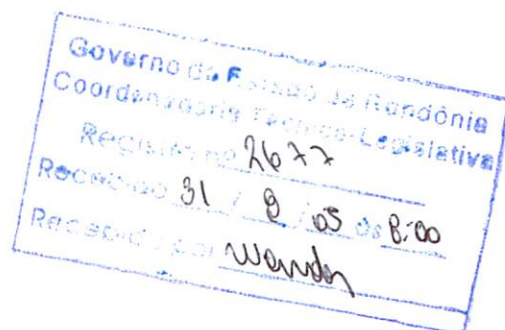 Governo do Estado de Rondônia
Coordenadoria Técnico-Legislativa
Registro nº 2677
Recebido 31 / 8 / 05 às 8:00
Recebido por Wanda